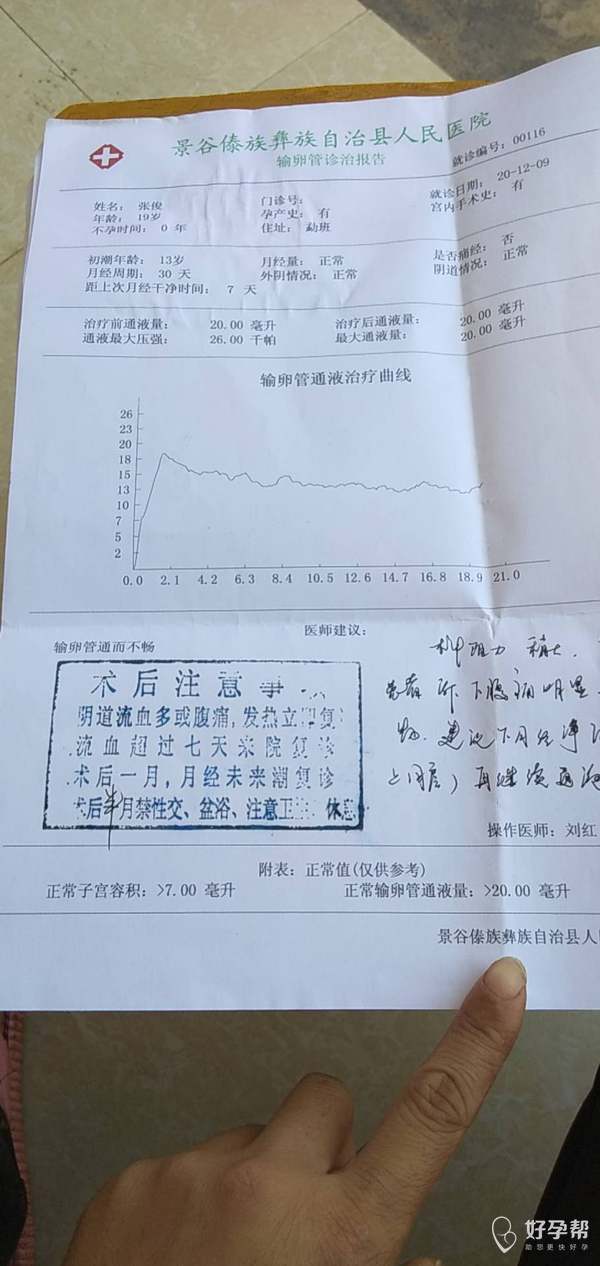 景谷傣族彝族自治县人民医院
输卵管诊治报告
就诊编号：00116
姓名：张俊 门诊号： 就诊日期：20-12-09
年龄：19岁 孕产史：有 宫内手术史：有
不孕时间：0 年 住址：勐班
初潮年龄：13岁 月经量：正常 是否痛经：否
月经周期：30 天 外阴情况：正常 阴道情况：正常
距上次月经干净时间：7 天
治疗前通液量：20.00 毫升 治疗后通液量：20.00 毫升
通液最大压强：26.00 千帕 最大通液量：20.00 毫升
输卵管通液治疗曲线
26
23
20
18
15
13
10
7
5
2
0.0 2.1 4.2 6.3 8.4 10.5 12.6 14.7 16.8 18.9 21.0
医师建议：
输卵管通而不畅
术后注意事
阴道流血多或腹痛，发热立即复
流血超过七天来院复诊
术后一月，月经未来潮复诊
术后半月禁性交、盆浴、注意卫 休息
操作医师：刘红
附表：正常值(仅供参考)
正常子宫容积：>7.00 毫升 正常输卵管通液量：>20.00 毫升
景谷傣族彝族自治县人
好孕帮
助您更快好孕